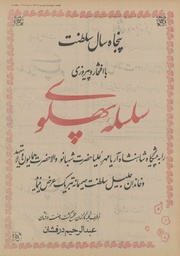 پنجاه سال سلطنت
با افتخار و پیروزی
سلسله پهلوی
را به پیشگاه شاهنشاه آریامهر علیاحضرت شهبانو والاحضرت همایون ولایتعهد
و خاندان جلیل سلطنت صمیمانه تبریک عرض مینماید
عبدالرحیم درفشان